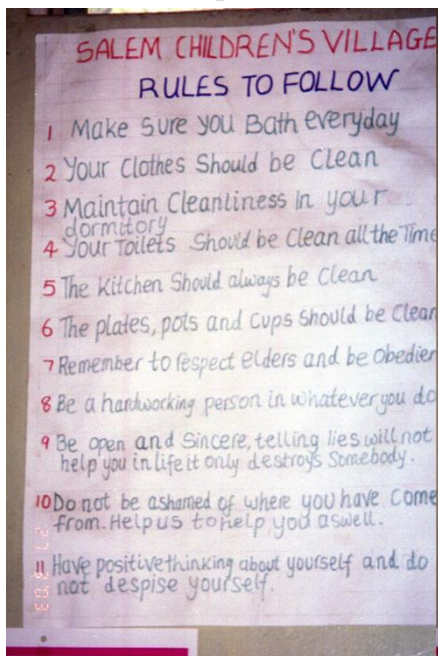 SALEM CHILDREN'S VILLAGE
RULES TO FOLLOW
1 Make Sure you Bath everyday
2 Your Clothes Should be Clean
3 Maintain Cleanliness in your
dormitory
4 Your Toilets Should be Clean all the Time
5 The Kitchen Should always be Clean
6 The plates, pots and Cups Should be Clean
7 Remember to respect elders and be Obedien
8 Be a hardworking person in whatever you do
9 Be open and Sincere, telling lies will not
help you in life it only destroys Somebody.
10 Do not be ashamed of where you have Come
from. Help us to help you aswell.
11 Have positive thinking about yourself and do
not despise yourself.